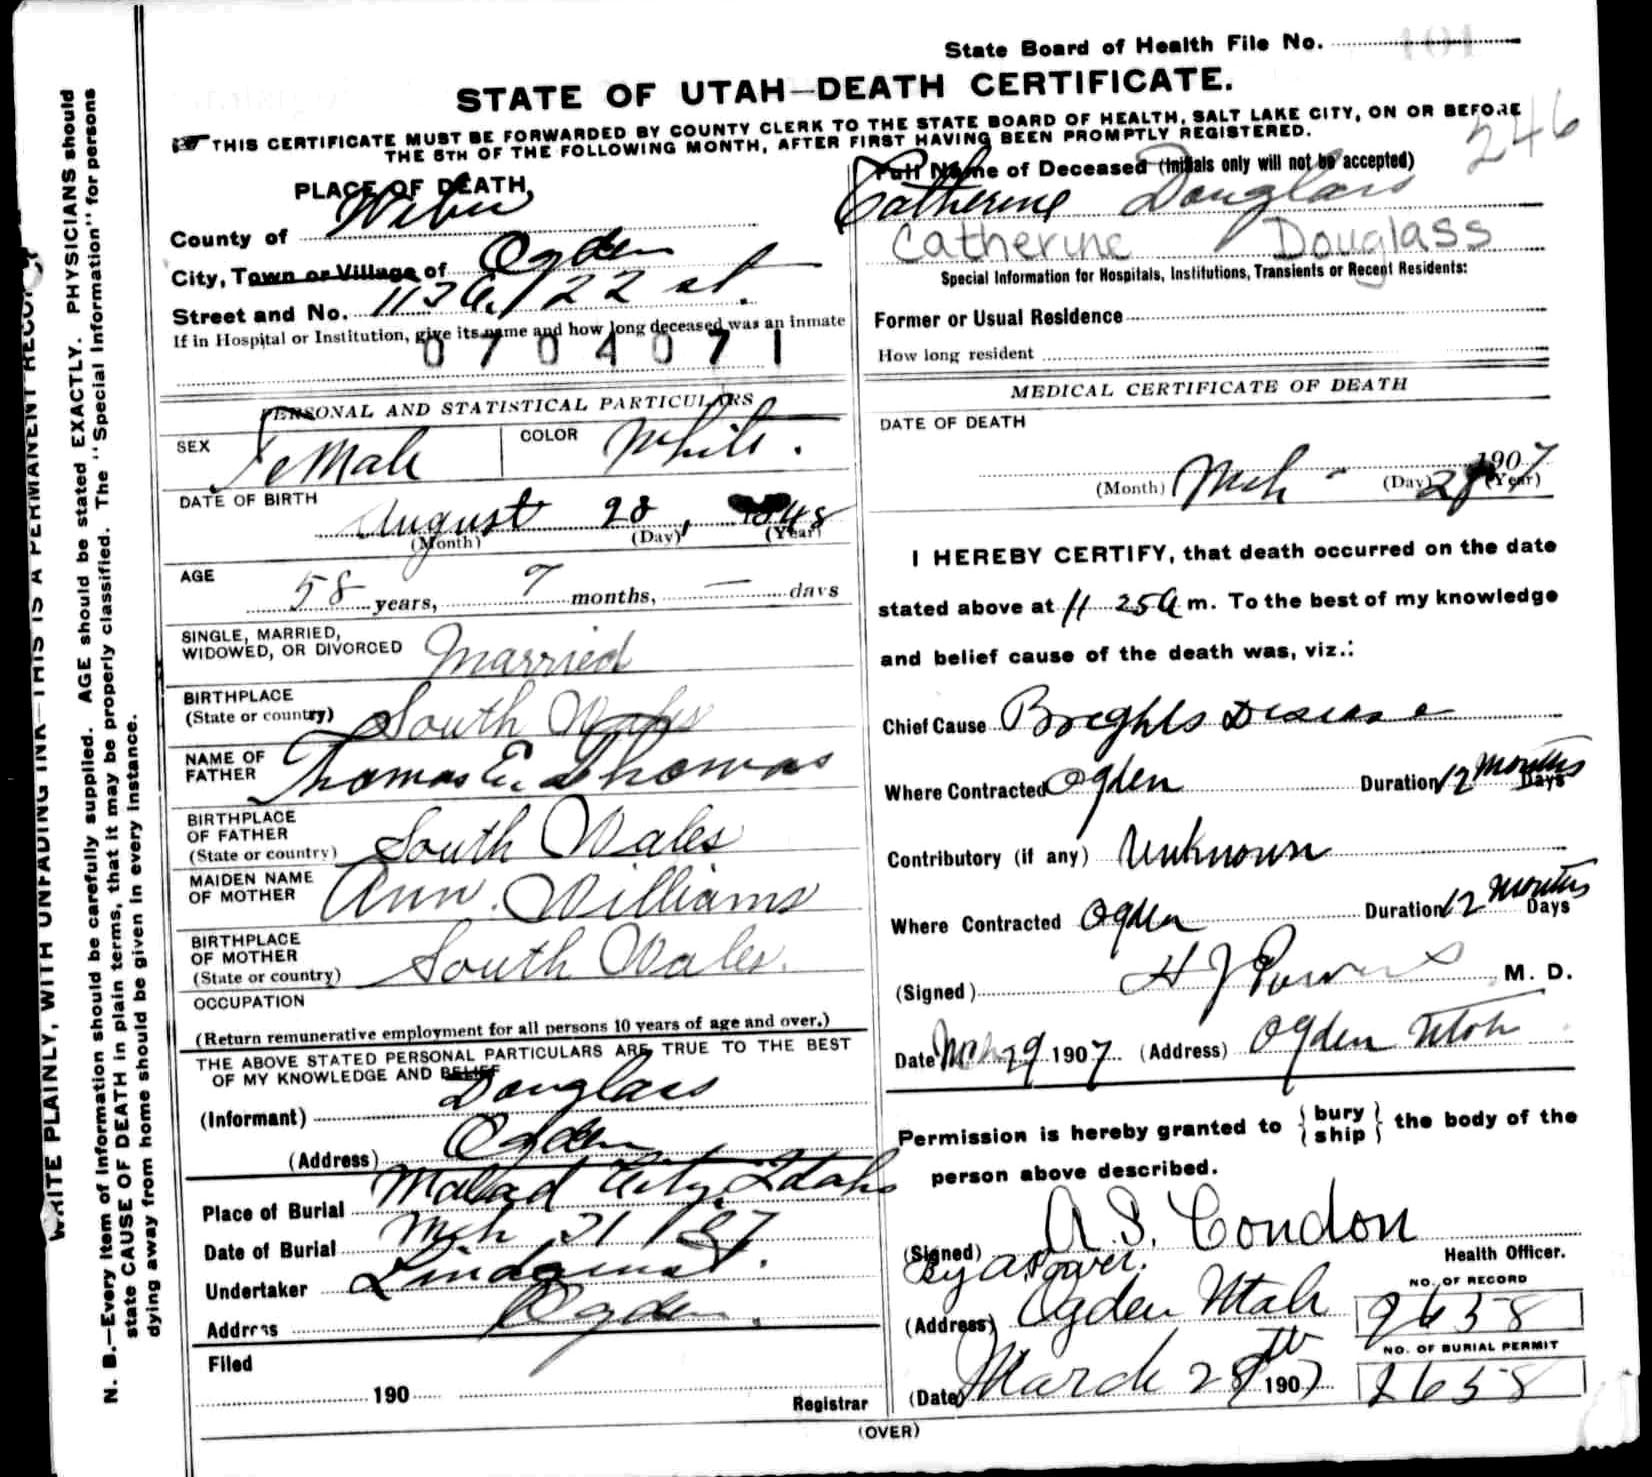 State Board of Health File No. 101
STATE OF UTAH—DEATH CERTIFICATE.
THIS CERTIFICATE MUST BE FORWARDED BY COUNTY CLERK TO THE STATE BOARD OF HEALTH, SALT LAKE CITY, ON OR BEFORE
THE 5TH OF THE FOLLOWING MONTH, AFTER FIRST HAVING BEEN PROMPTLY REGISTERED.
246
PLACE OF DEATH,
County of Weber
City, Town or Village of Ogden
Street and No. 22 st.
If in Hospital or Institution, give its name and how long deceased was an inmate
0704071
Full Name of Deceased (Initials only will not be accepted)
Catherine Douglass
Catherine Douglass
Special Information for Hospitals, Institutions, Transients or Recent Residents:
Former or Usual Residence
How long resident
PERSONAL AND STATISTICAL PARTICULARS
SEX Female COLOR White.
DATE OF BIRTH
August 28, 1848
(Month) (Day) (Year)
AGE
58 years, 7 months, — days
SINGLE, MARRIED,
WIDOWED, OR DIVORCED Married
BIRTHPLACE
(State or country) South Wales
NAME OF
FATHER Thomas E. Thomas
BIRTHPLACE
OF FATHER
(State or country) South Wales
MAIDEN NAME
OF MOTHER Ann Williams
BIRTHPLACE
OF MOTHER
(State or country) South Wales.
OCCUPATION
(Return remunerative employment for all persons 10 years of age and over.)
THE ABOVE STATED PERSONAL PARTICULARS ARE TRUE TO THE BEST
OF MY KNOWLEDGE AND BELIEF
(Informant) Douglass
(Address) Ogden
Place of Burial Malad City, Idaho
Date of Burial Mch 31 / 07
Undertaker Lindquist.
Address Ogden.
Filed
190
Registrar
MEDICAL CERTIFICATE OF DEATH
DATE OF DEATH
(Month) Mch (Day) 28 1907 (Year)
I HEREBY CERTIFY, that death occurred on the date
stated above at 11 25 A m. To the best of my knowledge
and belief cause of the death was, viz.:
Chief Cause Brights Disease
Where Contracted Ogden Duration 12 Months Days
Contributory (if any) Unknown
Where Contracted Ogden Duration 12 Months Days
(Signed) H J Powers M. D.
Date Mch 29 1907 (Address) Ogden Utah
Permission is hereby granted to { bury ship } the body of the
person above described.
(Signed) A. S. Condon
Health Officer.
By
(Address) Ogden Utah
NO. OF RECORD
2658
(Date) March 29th 1907
NO. OF BURIAL PERMIT
2658
(OVER)
WRITE PLAINLY, WITH UNFADING INK—THIS IS A PERMANENT RECORD
N. B.—Every item of information should be carefully supplied. AGE should be stated EXACTLY. PHYSICIANS should
state CAUSE OF DEATH in plain terms, that it may be properly classified. The "Special Information" for persons
dying away from home should be given in every instance.